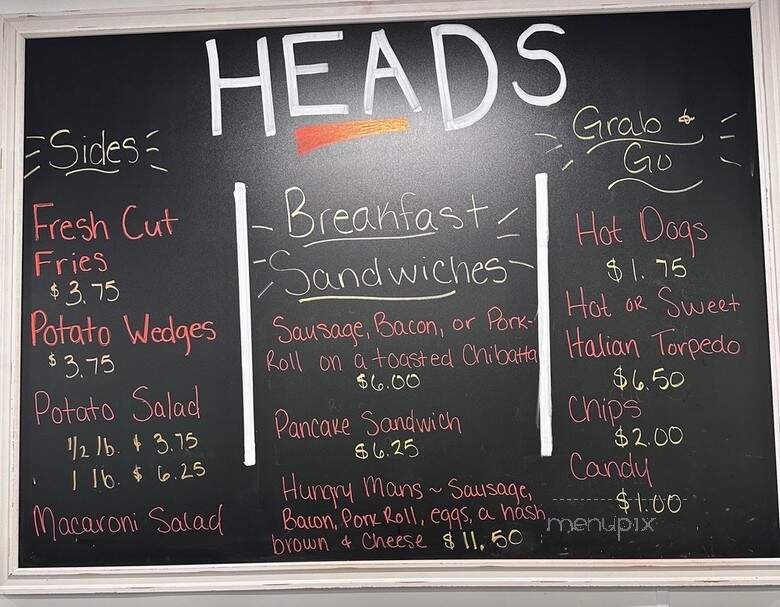 HEADS
Sides
Fresh Cut
Fries
$3.75
Potato Wedges
$3.75
Potato Salad
1/2 lb. $ 3.75
1 lb. $ 6.25
Macaroni Salad
Breakfast
Sandwiches
Sausage, Bacon, or Pork-
Roll on a toasted Chibatta
$6.00
Pancake Sandwich
$6.25
Hungry Mans ~ Sausage,
Bacon, Pork Roll, eggs, a hash
brown & Cheese $11.50
Grab &
Go
Hot Dogs
$1.75
Hot or Sweet
Italian Torpedo
$6.50
Chips
$2.00
Candy
$1.00
menupix